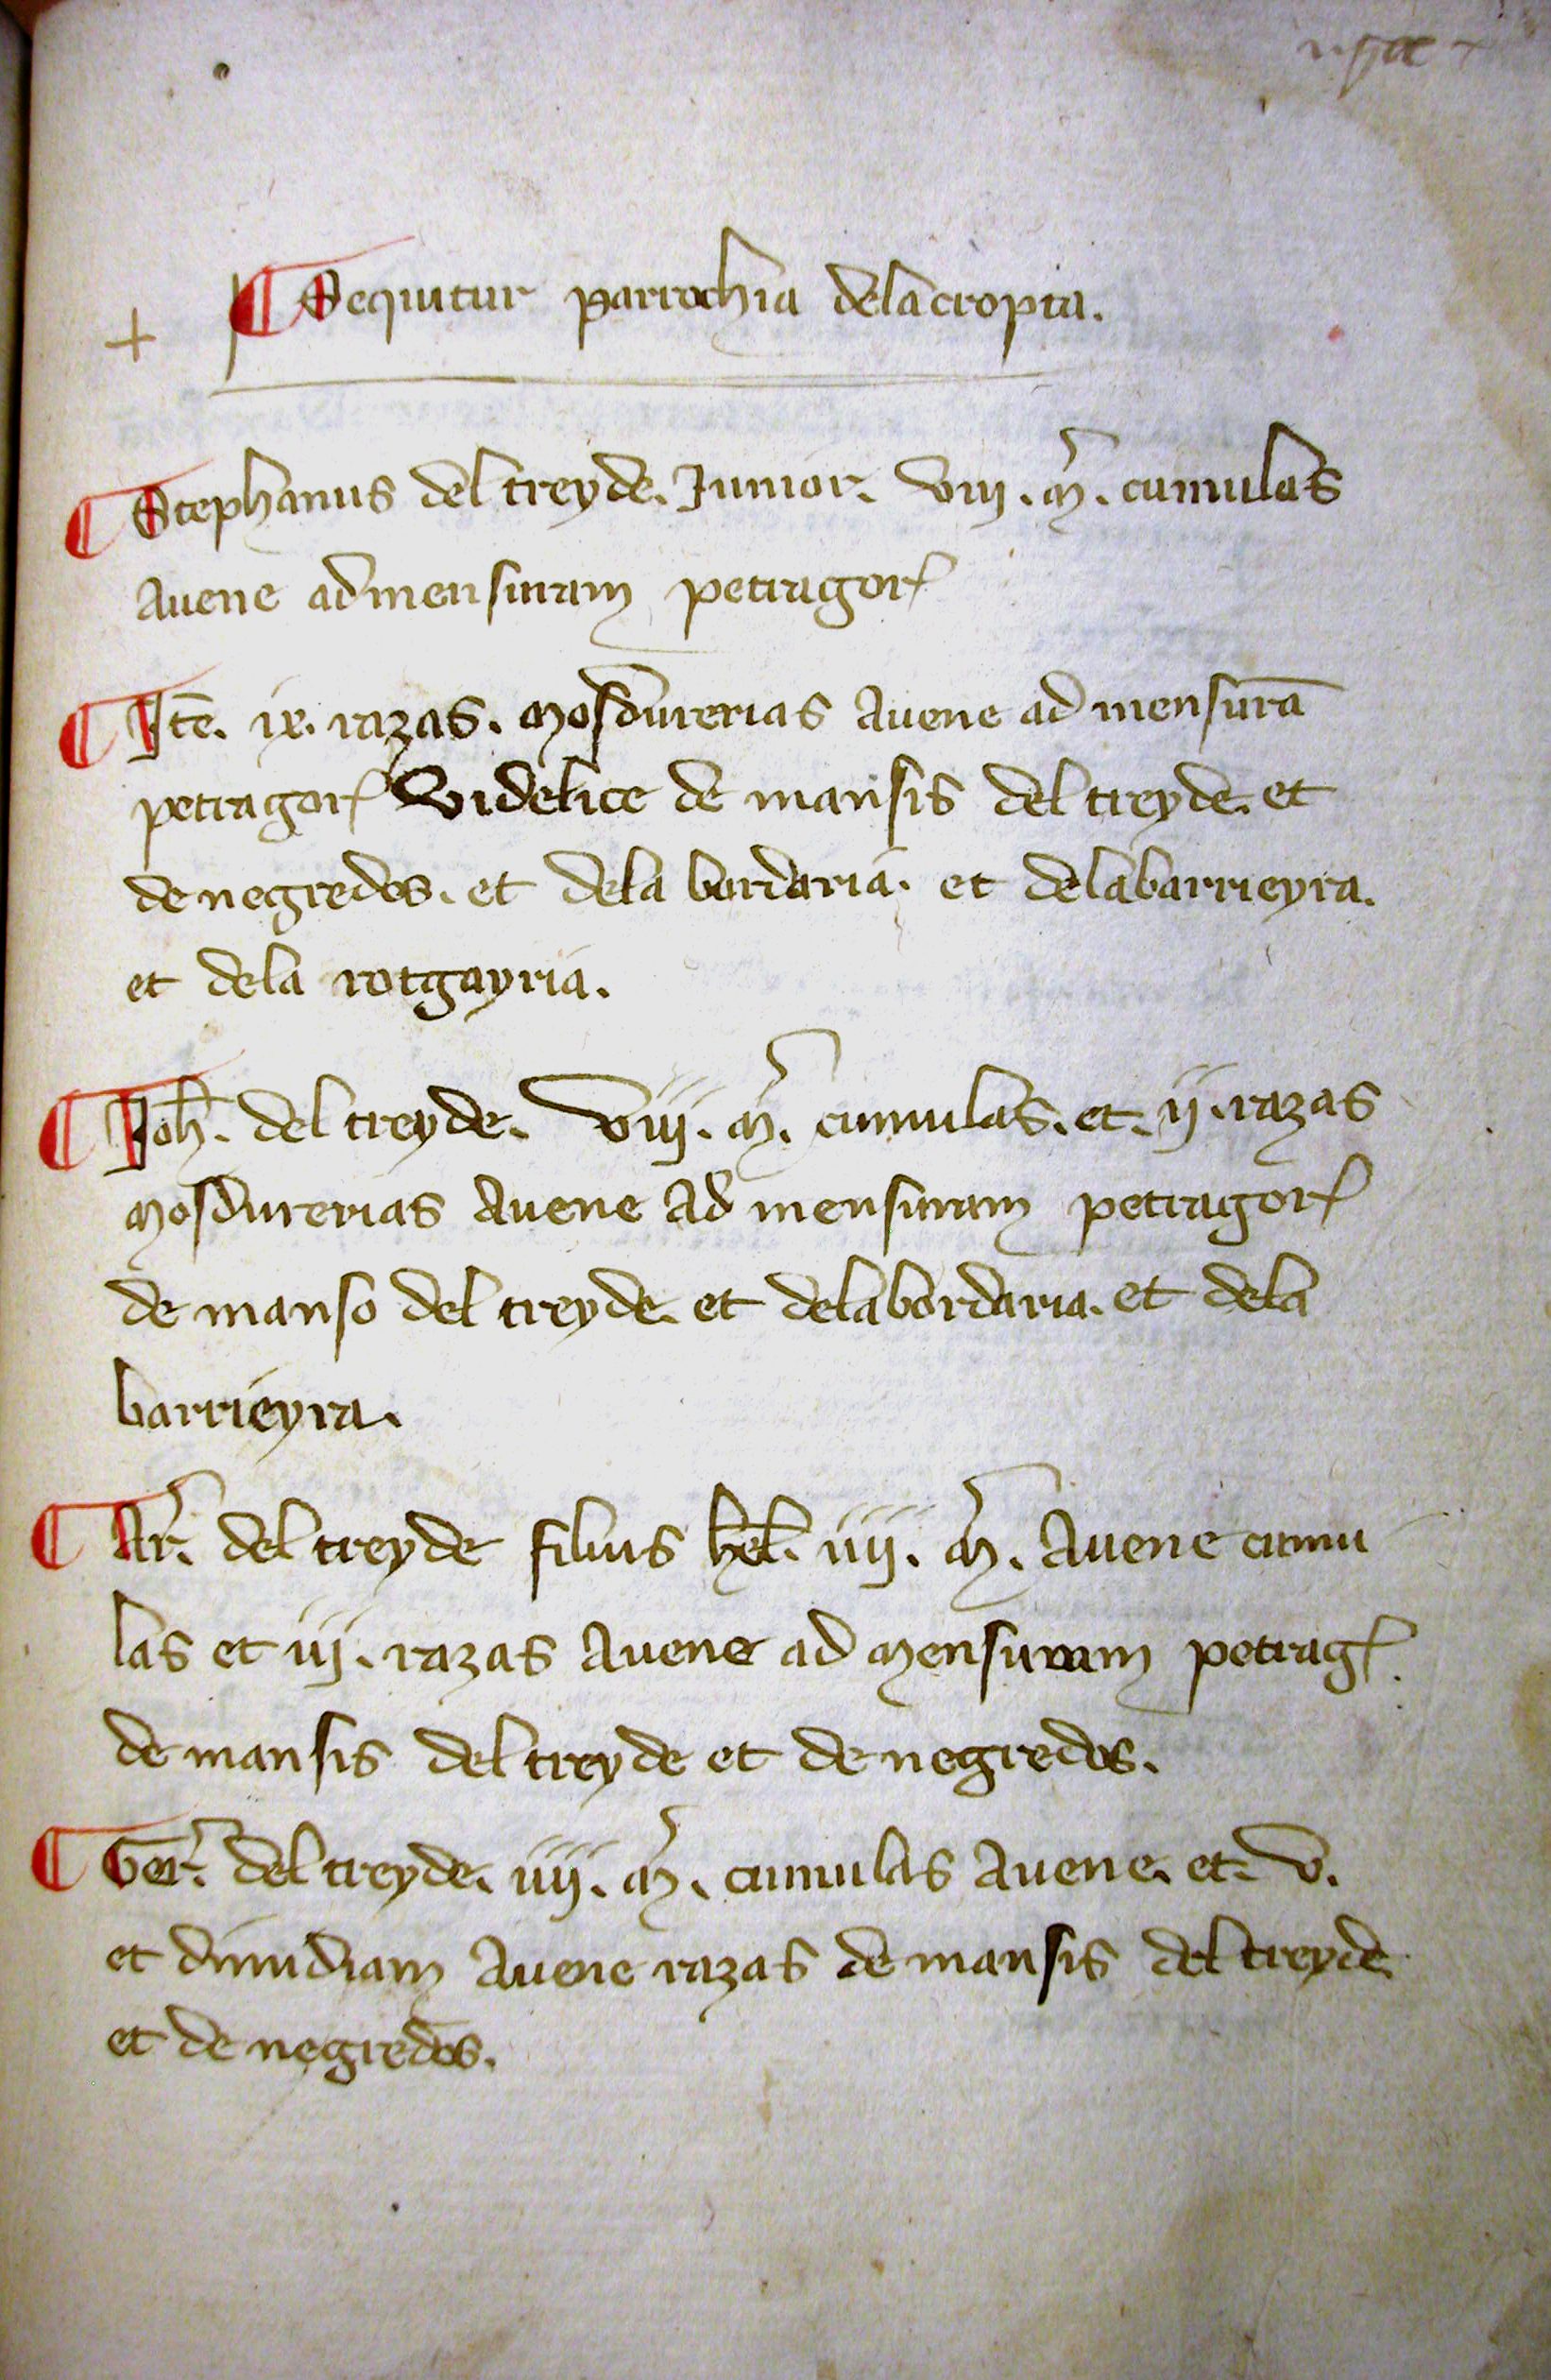 Sequitur parrochia delacropta.
Stephanus deltreyde. Junior. viij. m̃. cumulas
avene admensuram petragor̃
Itẽ. ix. razas. mosdurerias avene ad mensurã
petragor̃ Videlice de mansis deltreyde. et
denegredos. et dela bordaria. et delabarrieyra.
et dela rotgayria.
Joh̃. del treyde. viij. m̃. cumulas. et. ij. razas
mosdurerias avene ad mensuram petragor̃
de manso del treyde. et delabordaria. et dela
barrieyra.
Ar̃. del treyde filius hel̃. iiij. m̃. avene cumu
las et iij. razas avene ad mensuram petrag̃.
de mansis deltreyde et denegredos.
Ger̃. deltreyde. iiij. m̃. cumulas avene. et. v.
et dimidiam avene razas demansis deltreyde.
et denegredos.